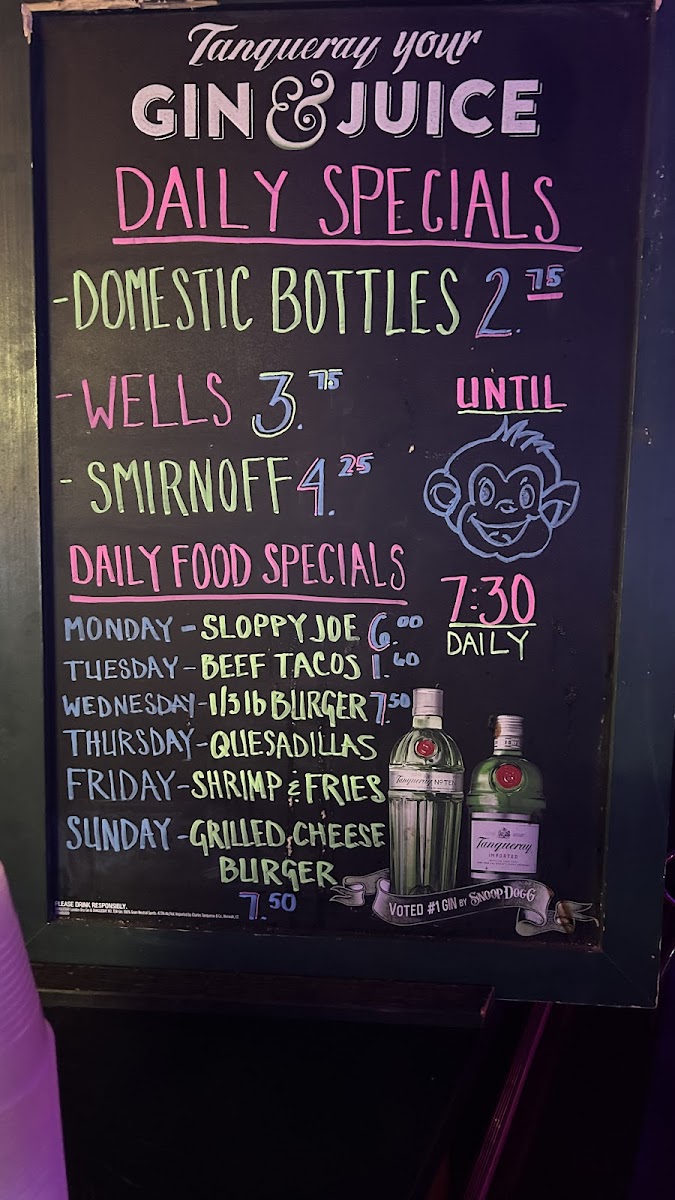 Tanqueray your
GIN & JUICE
DAILY SPECIALS
-DOMESTIC BOTTLES 2.75
-WELLS 3.75
UNTIL
-SMIRNOFF 4.25
DAILY FOOD SPECIALS
7:30
DAILY
MONDAY-SLOPPY JOE 6.00
TUESDAY-BEEF TACOS 1.60
WEDNESDAY-1/3 lb BURGER 7.50
THURSDAY-QUESADILLAS
FRIDAY-SHRIMP & FRIES
SUNDAY-GRILLED CHEESE
BURGER
7.50
Tanqueray No TEN
Tanqueray
IMPORTED
VOTED #1 GIN BY SNOOP DOGG
PLEASE DRINK RESPONSIBLY.